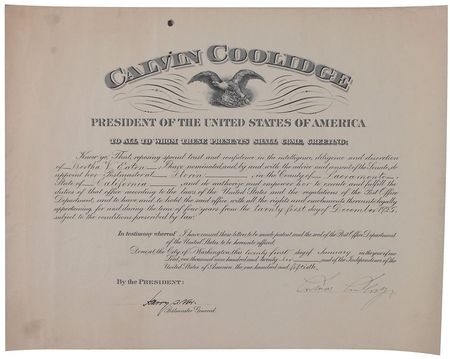 CALVIN COOLIDGE
PRESIDENT OF THE UNITED STATES OF AMERICA
TO ALL TO WHOM THESE PRESENTS SHALL COME, GREETING:
Know ye, That reposing special trust and confidence in the intelligence, diligence and discretion
of Bertha V. Eaton I have nominated, and by and with the advice and consent of the Senate, do
appoint her Postmaster at Florin in the County of Sacramento,
State of California and do authorize and empower her to execute and fulfill the
duties of that office according to the laws of the United States and the regulations of the Post Office
Department, and to have and to hold the said office with all the rights and emoluments thereunto legally
appertaining for and during the term of four years from the Twenty-first day of December, 1925,
subject to the conditions prescribed by law.
In testimony whereof I have caused these letters to be made patent and the seal of the Post Office Department
of the United States to be hereunto affixed.
Done at the City of Washington this twenty first day of January in the year of our
Lord, one thousand nine hundred and twenty six and of the Independence of the
United States of America the one hundred and fiftieth.
By the PRESIDENT:
Calvin Coolidge
Harry S. New
Postmaster General.